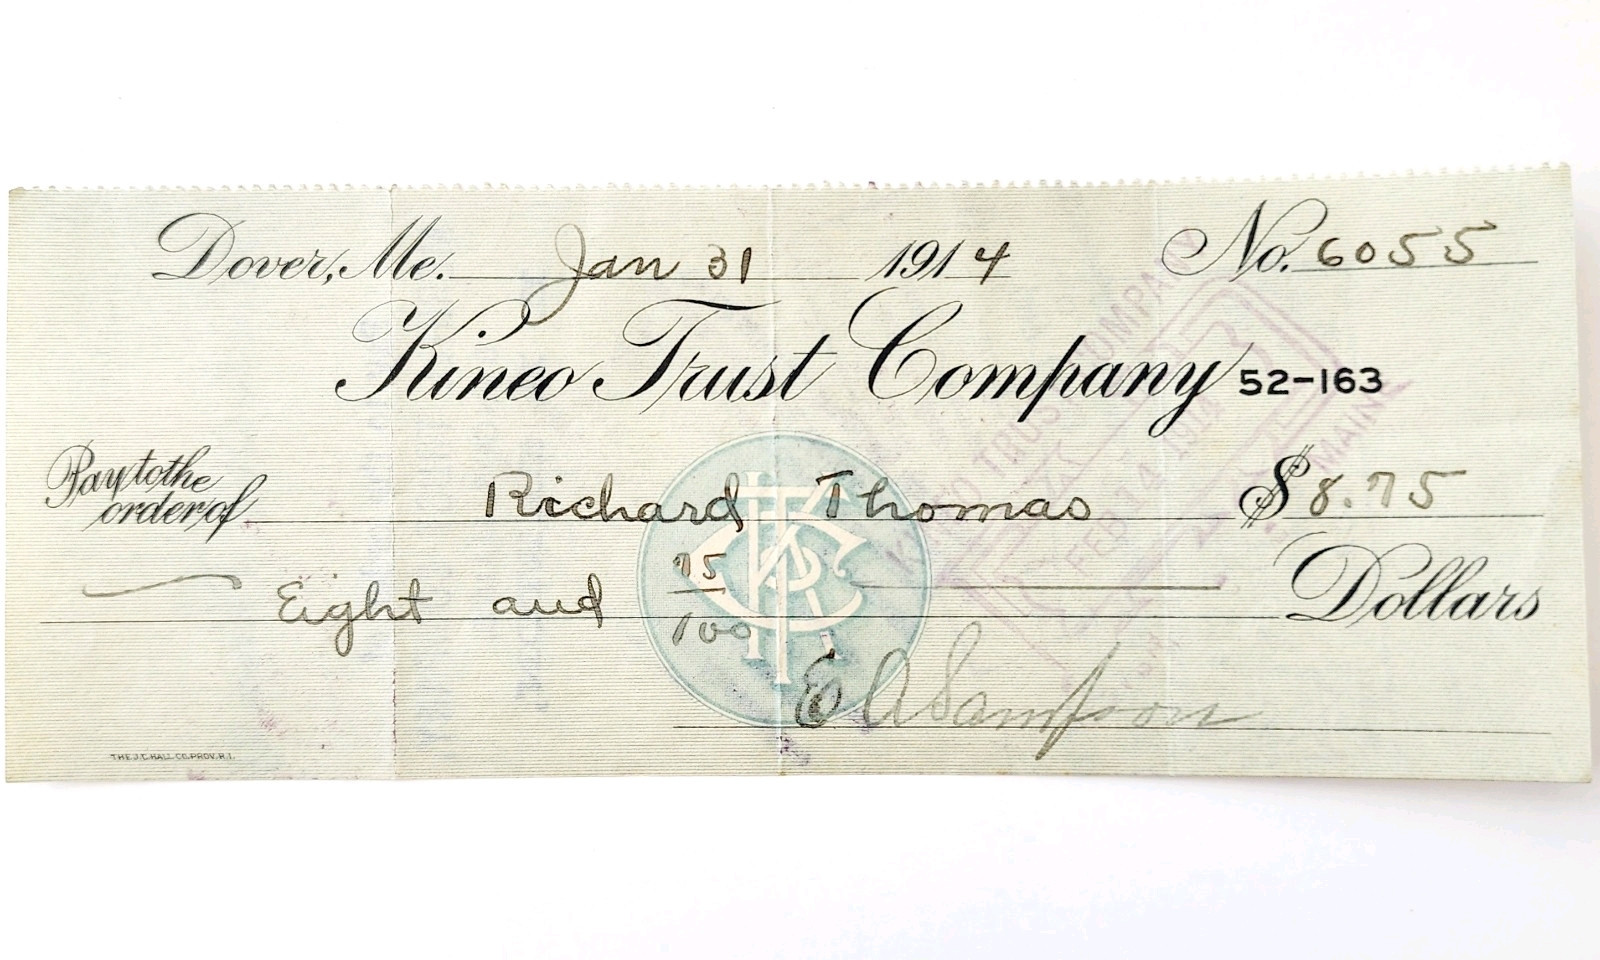 Dover, Me. Jan 31 1914 No. 6055
Kineo Trust Company 52-163
Pay to the order of Richard Thomas $8.75
Eight and 75/100 Dollars
E A Sampson
THE J.C. HALL CO. PROV. R.I.
KINEO TRUST COMPANY
FEB 14 1914
MAINE